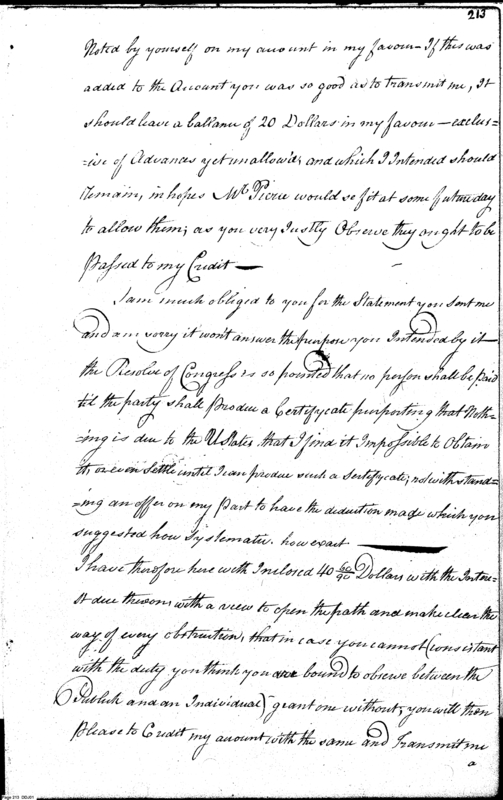 213
Noted by yourself on my amount in my favour – If this was
added to the Amount you was so good as to transmit me, It
should leave a ballance of 20 Dollars in my favour – exclus=
=ive of Advances yet unallow'd; and which I Intended should
remain, in hopes Mr. Pierce would se fit at some future day
to allow them; as you very Justly Observe they ought to be
Passed to my Credit —
I am much obliged to you for the Statement you sent me
and am sorry it wont answer the purpose you Intended by it –
the Resolve of Congress is so pointed that no person shall be paid
til the party shall Produce a Certificate purporting that Noth=
=ing is due to the UStates, that I find it Impossible to Obtain
it, or even Settle until I can produce such a Sertifycate; notwithstand=
=ing an offer on my Part to have the deduction made which you
suggested how Systematic. how exact —
I have therefore here with Inclosed 40 60/90 Dollars with the Intere=
st due thereon with a view to open the path and make clear the
way of every obstruction, that in case you cannot (consistant
with the duty you think you are bound to observe between the
Publick and an Individual) grant one without, you will then
Please to Credit my amount with the same and Transmit me
a
Page 213